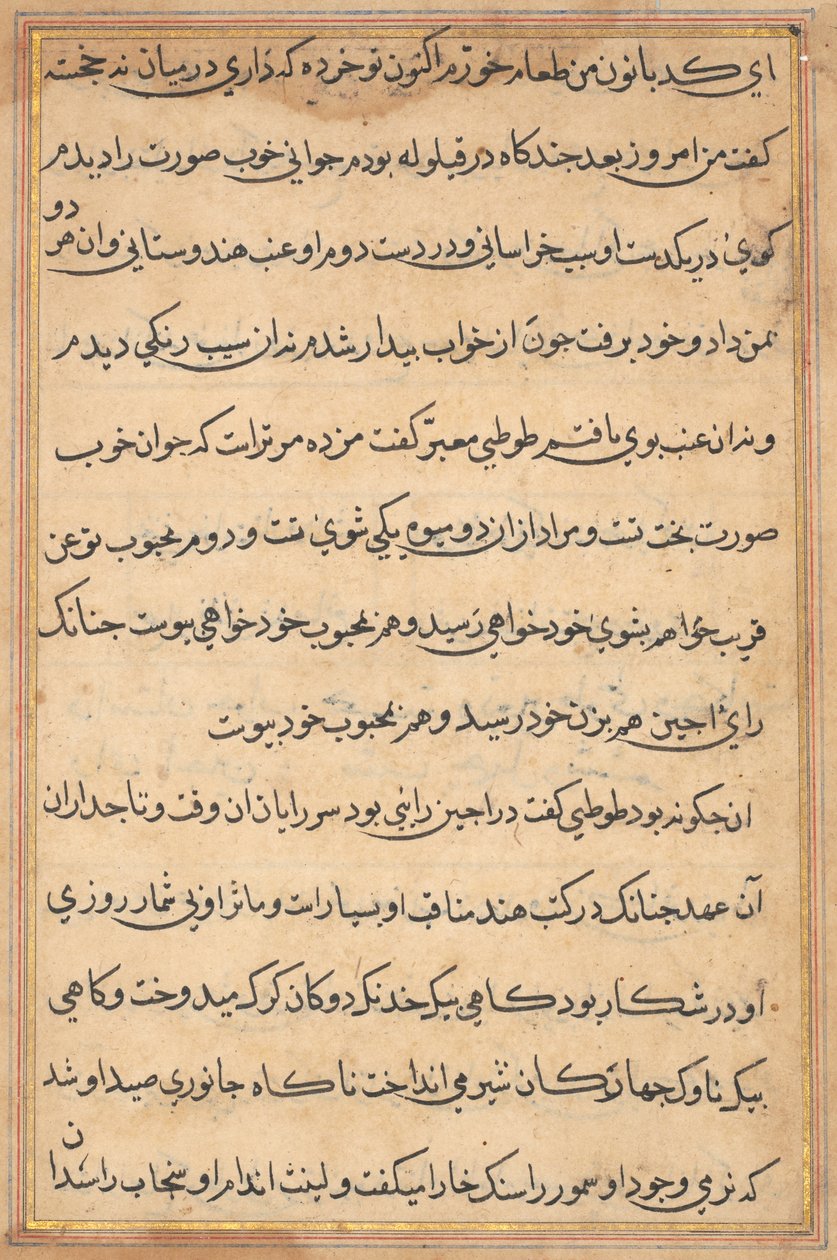 اي کدبانو من طعام خوردم اکنون تو خرده که داري در ميان نه خجسته
کفت من امروز بعد چندکاه در قيلوله بودم جواني خوب صورت را ديدم
کوئي در يکدست او سيب خراساني و در دست دوم او عنب هندوستاني و ان هر دو
بمن داد و خود برفت جون از خواب بيدار شدم نه ازان سيب رنکي ديدم
و نه ازان عنب بوي يافتم طوطيي معبّر کفت مژده مر تراست که جوان خوب
صورت بخت تست و مراد ازان دو ميوه يکي شوئ تست و دوم محبوب تو عن
قريب هم بشوئ خود خواهي رسيد و هم بمحبوب خود خواهي پيوست جنانک
راي اجين هم بزن خود رسيد و هم بمحبوب خود پيوست
ان جکونه بود طوطيي کفت در اجين رائي بود سر رايان ان وقت و تاجداران
آن عهد جنانک در کتب هند مناقب او بسيار است و ماثر او بي شمار روزي
او در شکار بود کاهي بيک خدنک دوکان کرک ميدوخت و کاهي
بيک ناوک جهارکان شير مي انداخت ناکاه جانوري صيد او شد
که نرمي وجود او سمور را سنک خارا ميکفت و لينت اندام او سنجاب را سندان